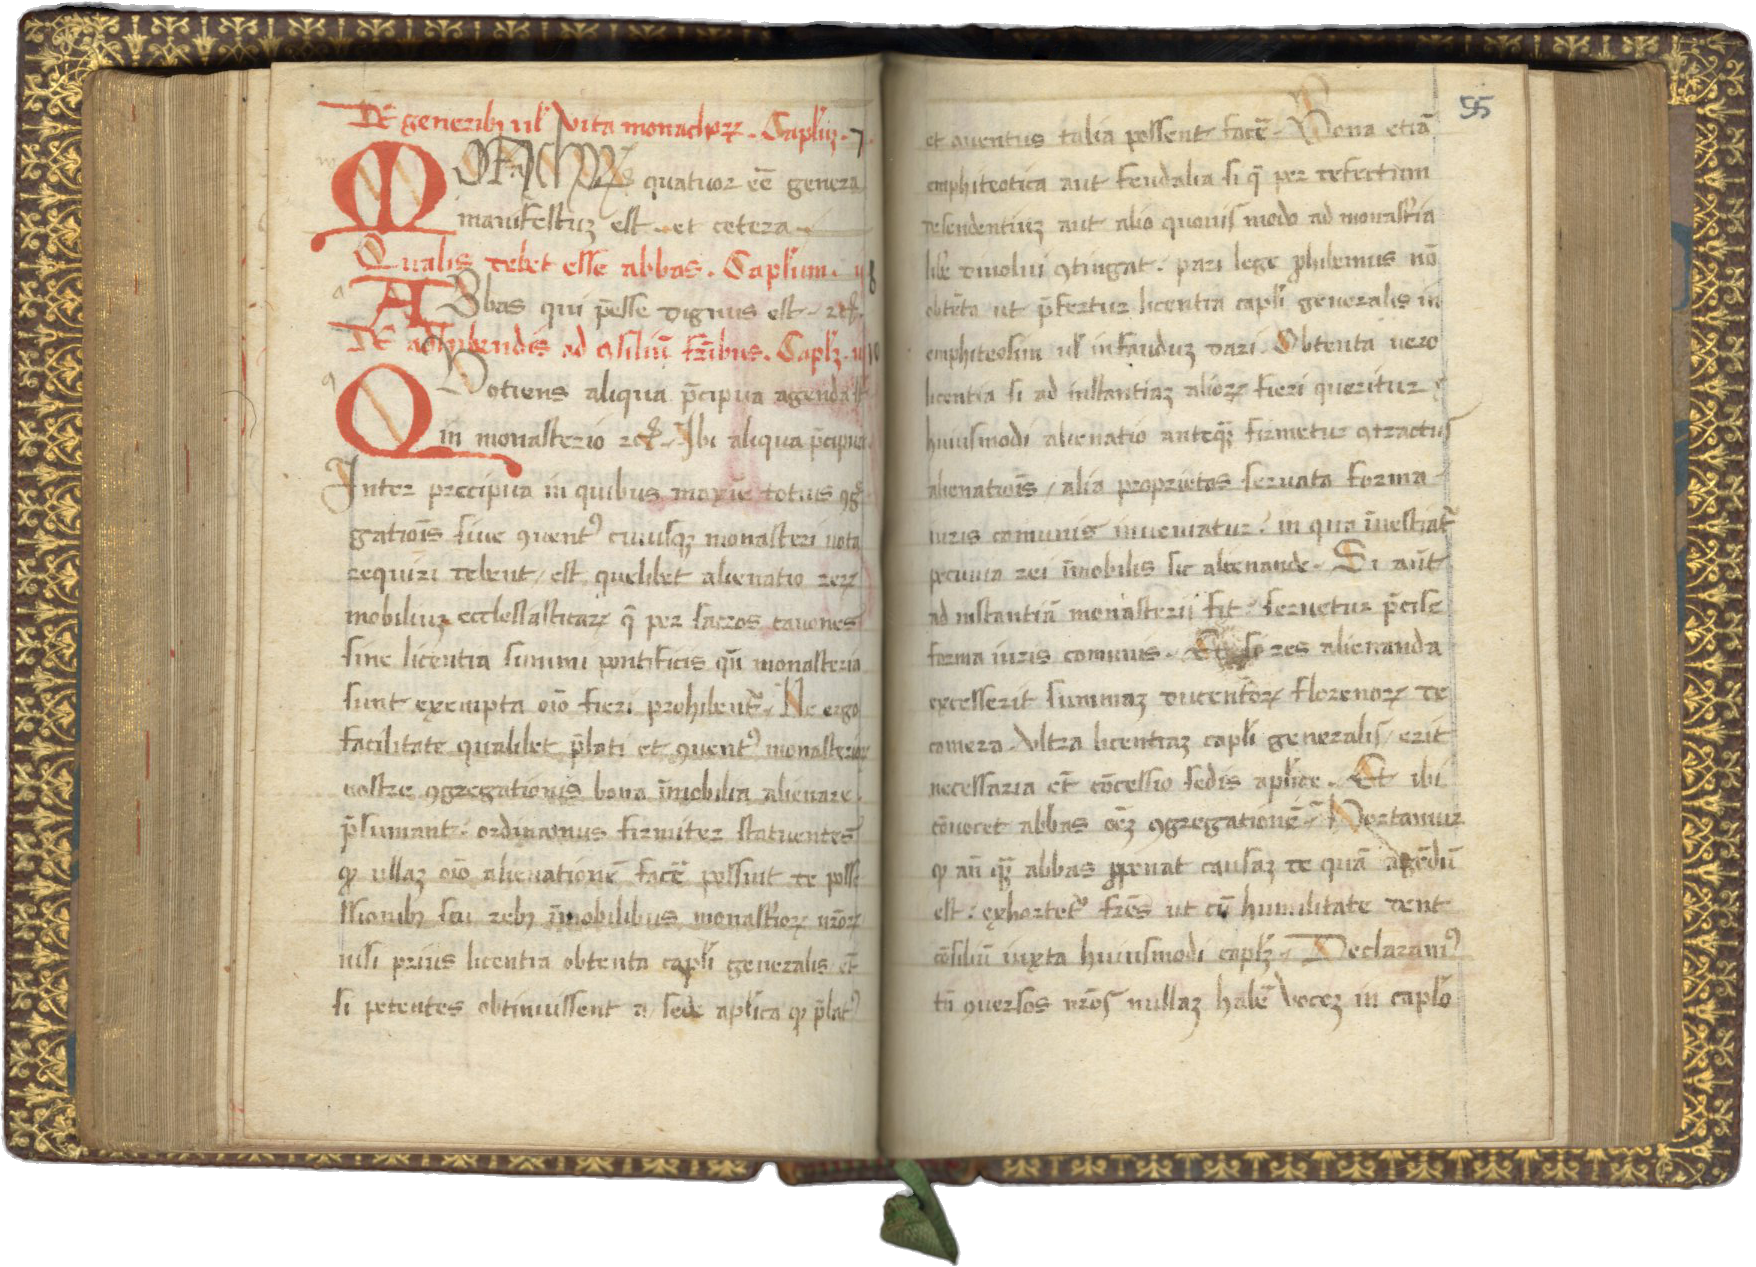 De generibꝫ ul̕ vita monachoꝝ. Capl̕uꝫ. 7
MONAchOꝝ quatuor eē genera
manifestuꝫ est et cetera
Qualis debet esse abbas. Capl̕um. 8
ABbas qui p̄esse dignus est
De adhibendis ad ꝯsiliū fr̄ibus. Capl̕ꝫ. 10
QVotiens aliqua p̄cipua agenda st̄
in monasterio Ibi aliqua p̄cipua.
Inter precipua in quibus maxīe totius ꝯg̃
gatiōis siue ꝯuentꝰ cuiusqꝫ monasteri uota
requiri debent / est quelibet alienatio reꝝ
mobiliuꝫ ecclesiasticaꝝ q̄ per sacros canones
sine licentia summi pontificis qn̄ monasteria
sunt exempta oīo fieri prohibent᷑. Ne ergo
facilitate qualibet p̄lati et ꝯuentꝰ monasterioꝝ
nostre ꝯgregationis bona īmobilia alienare
p̄sumant: ordinamus firmiter statuentes
ꝙ ullaꝫ oīo alienationē facē possint de posse
ssionibꝫ seu rebꝫ īmobilibus monast̕ioꝝ nr̄oꝝ
nisi prius licentia obtenta capl̕i generalis et̄
si petentes obtinuissent a sede apl̕ica ꝙ p̄latꝰ
55
et ꝯuentus talia possent facē. Bona etiā
emphiteotica aut feudalia si q̄ per defectum
descendentiuꝫ aut alio quouis modo ad monast̕ia
lib̕e diuolui ꝯtingat: pari lege ꝓhibemus nō
obtēta ut p̄fertur licentia capl̕i generalis in
emphiteosim ul̕ infauduꝫ dari. Obtenta uero
licentia si ad instantiaꝫ alioꝝ fieri queritur
huiusmodi alienatio anteqꝫ firmetur ꝯtractus
alienatiōis / alia proprietas seruata forma
iuris comunis inueniatur: in qua īuestiat᷑
pecunia rei īmobilis sic alienande. Si aūt
ad instantiā monasterii fit: seruetur p̄cise
forma iuris comunis. Et si res alienanda
excesserit summaꝫ ducentoꝝ florenoꝝ de
camera Vltra licentiaꝫ capl̕i generalis / erit
necessaria et̄ cōcessio sedis apl̕ice. Et ibi
cōuocet abbas oēꝫ ꝯgregationē. Hortamur
ꝙ an̄ qꝫ abbas ꝓponat causaꝫ de qua agēdū
est: exhortetᷣ fr̄es ut cū humilitate dent
cōsiliū iuxta huiusmodi caplꝫ. Declaramꝰ
tn̄ ꝯuersos nr̄os nullaꝫ habē voceꝫ in capl̕o